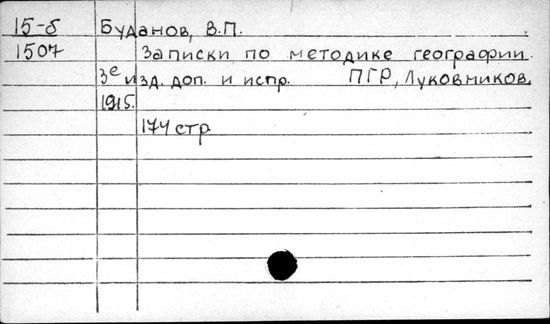 15-б Буданов, В.П.
1507 Записки по методике географии.
3е изд. доп. и испр. ПГР, Луковников,
1915.
174 стр